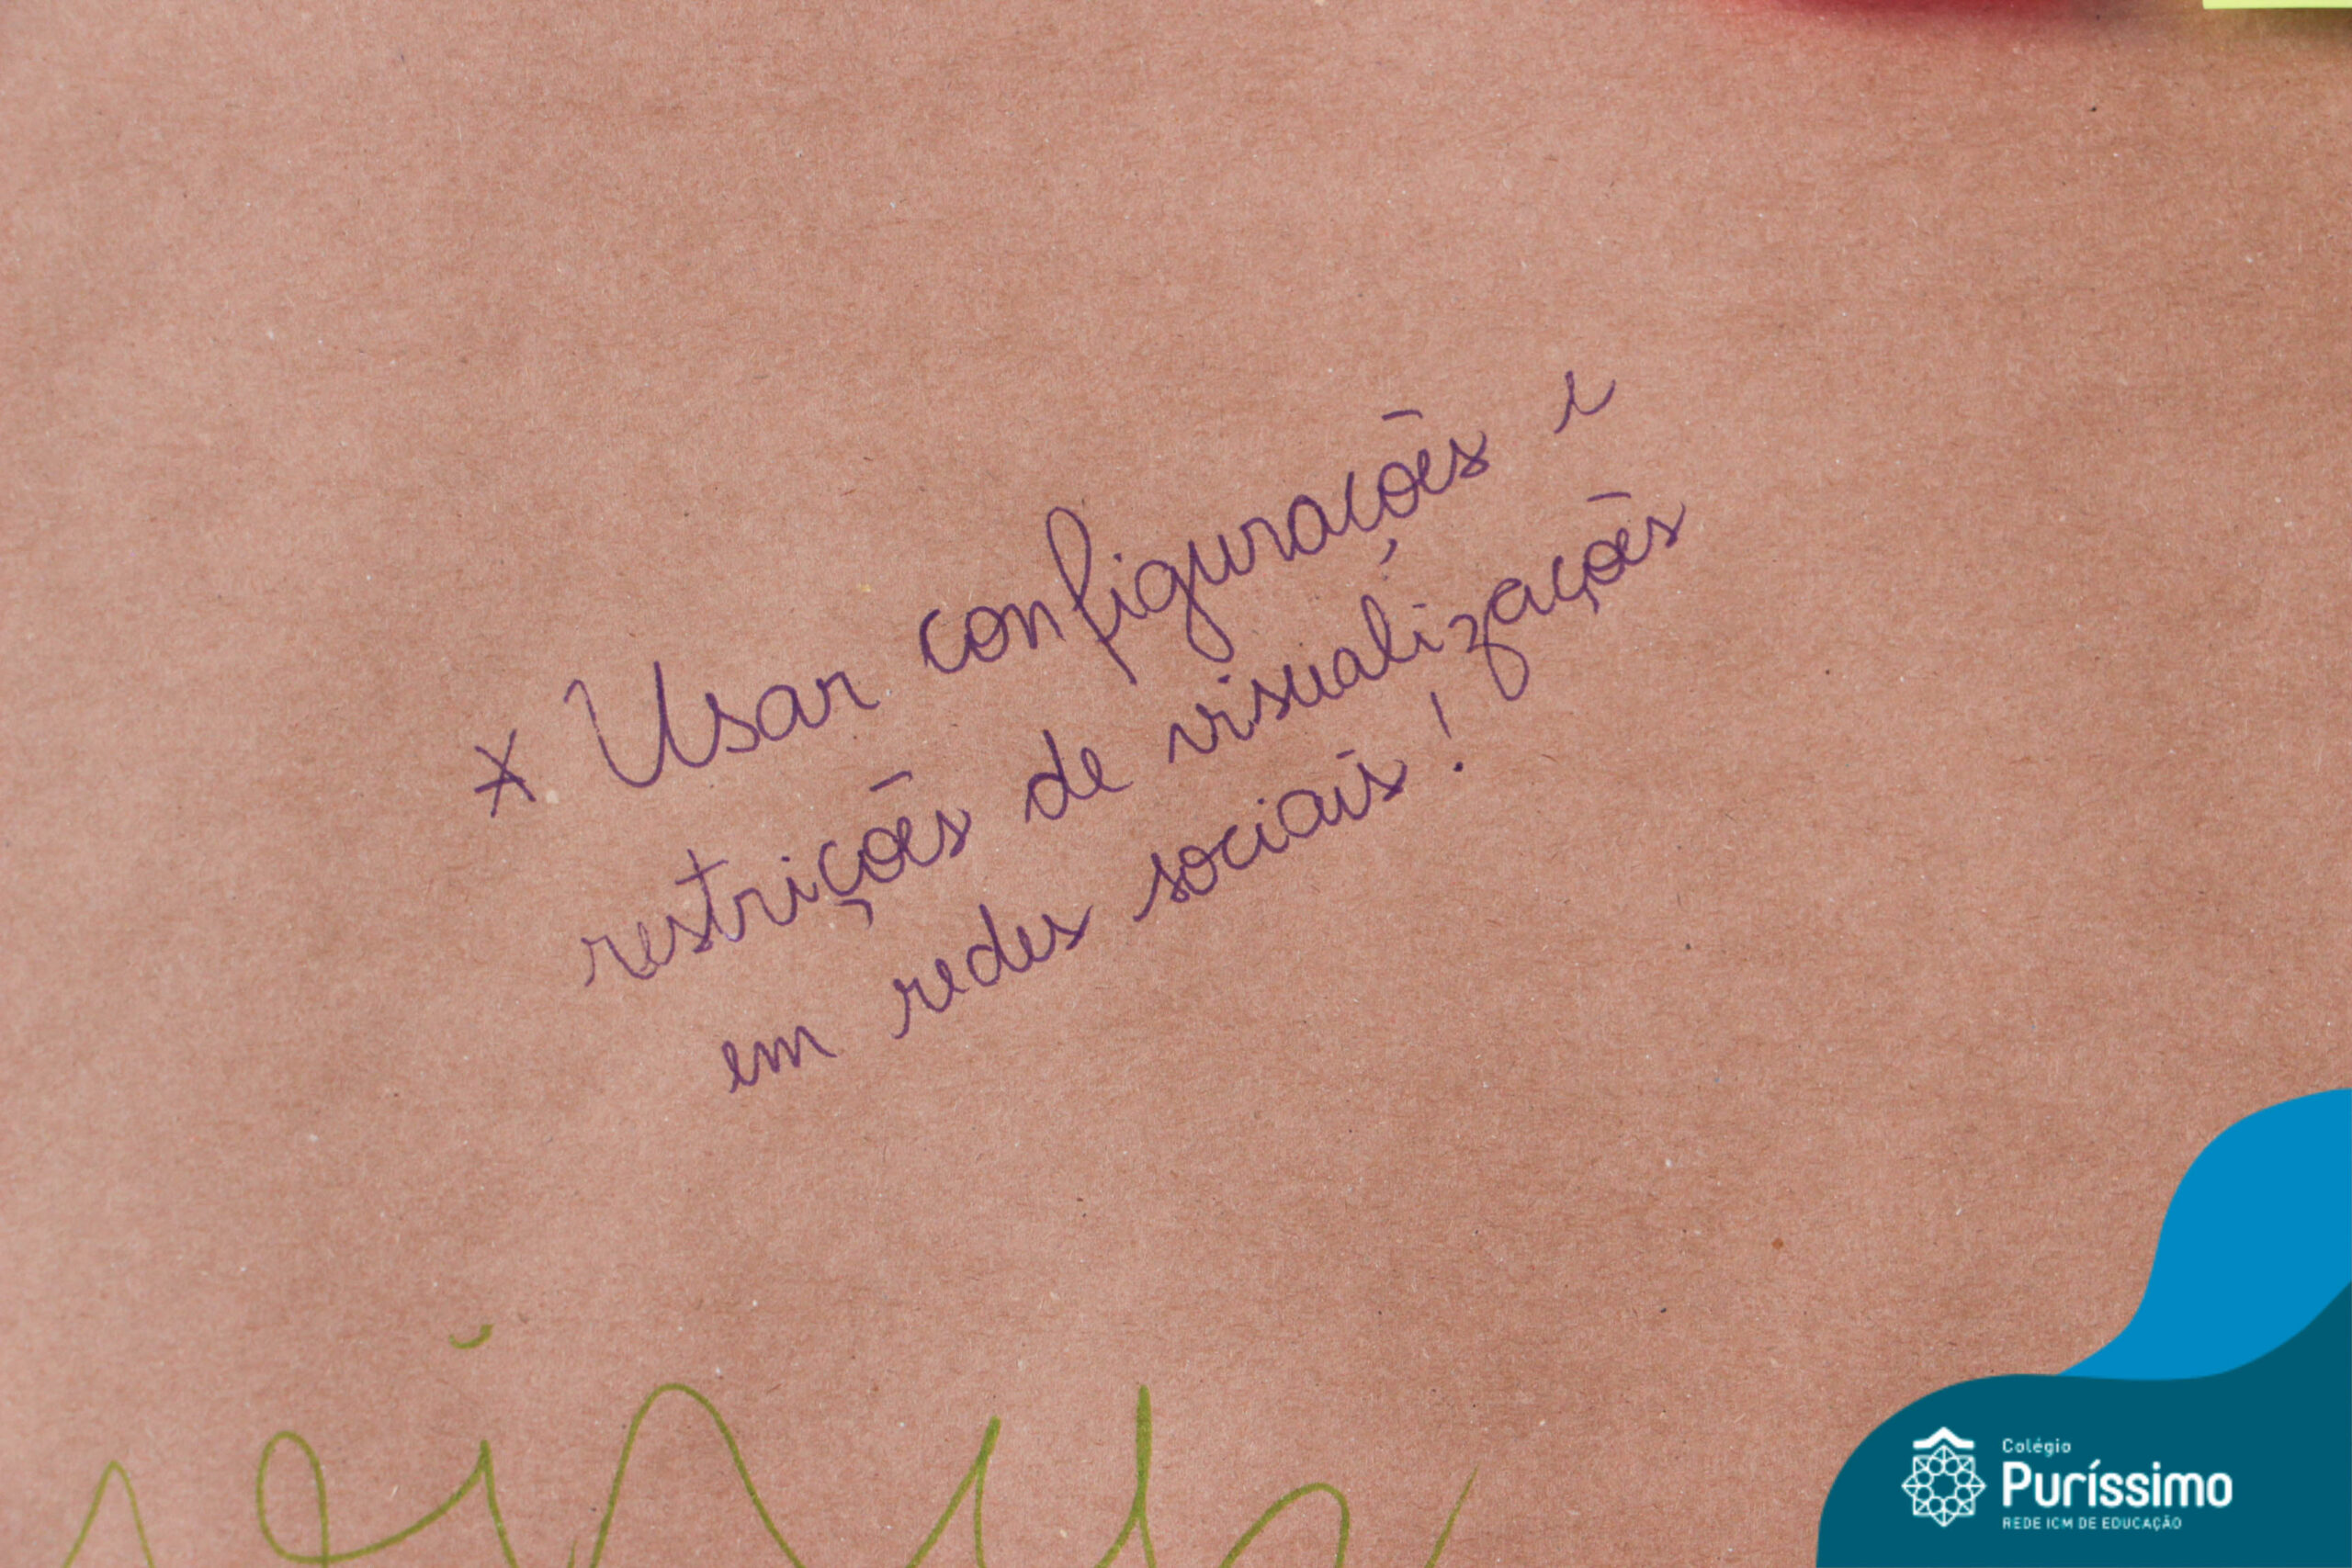 * Usar configurações e
restrições de visualizações
em redes sociais!
Colégio
Puríssimo
REDE ICM DE EDUCAÇÃO